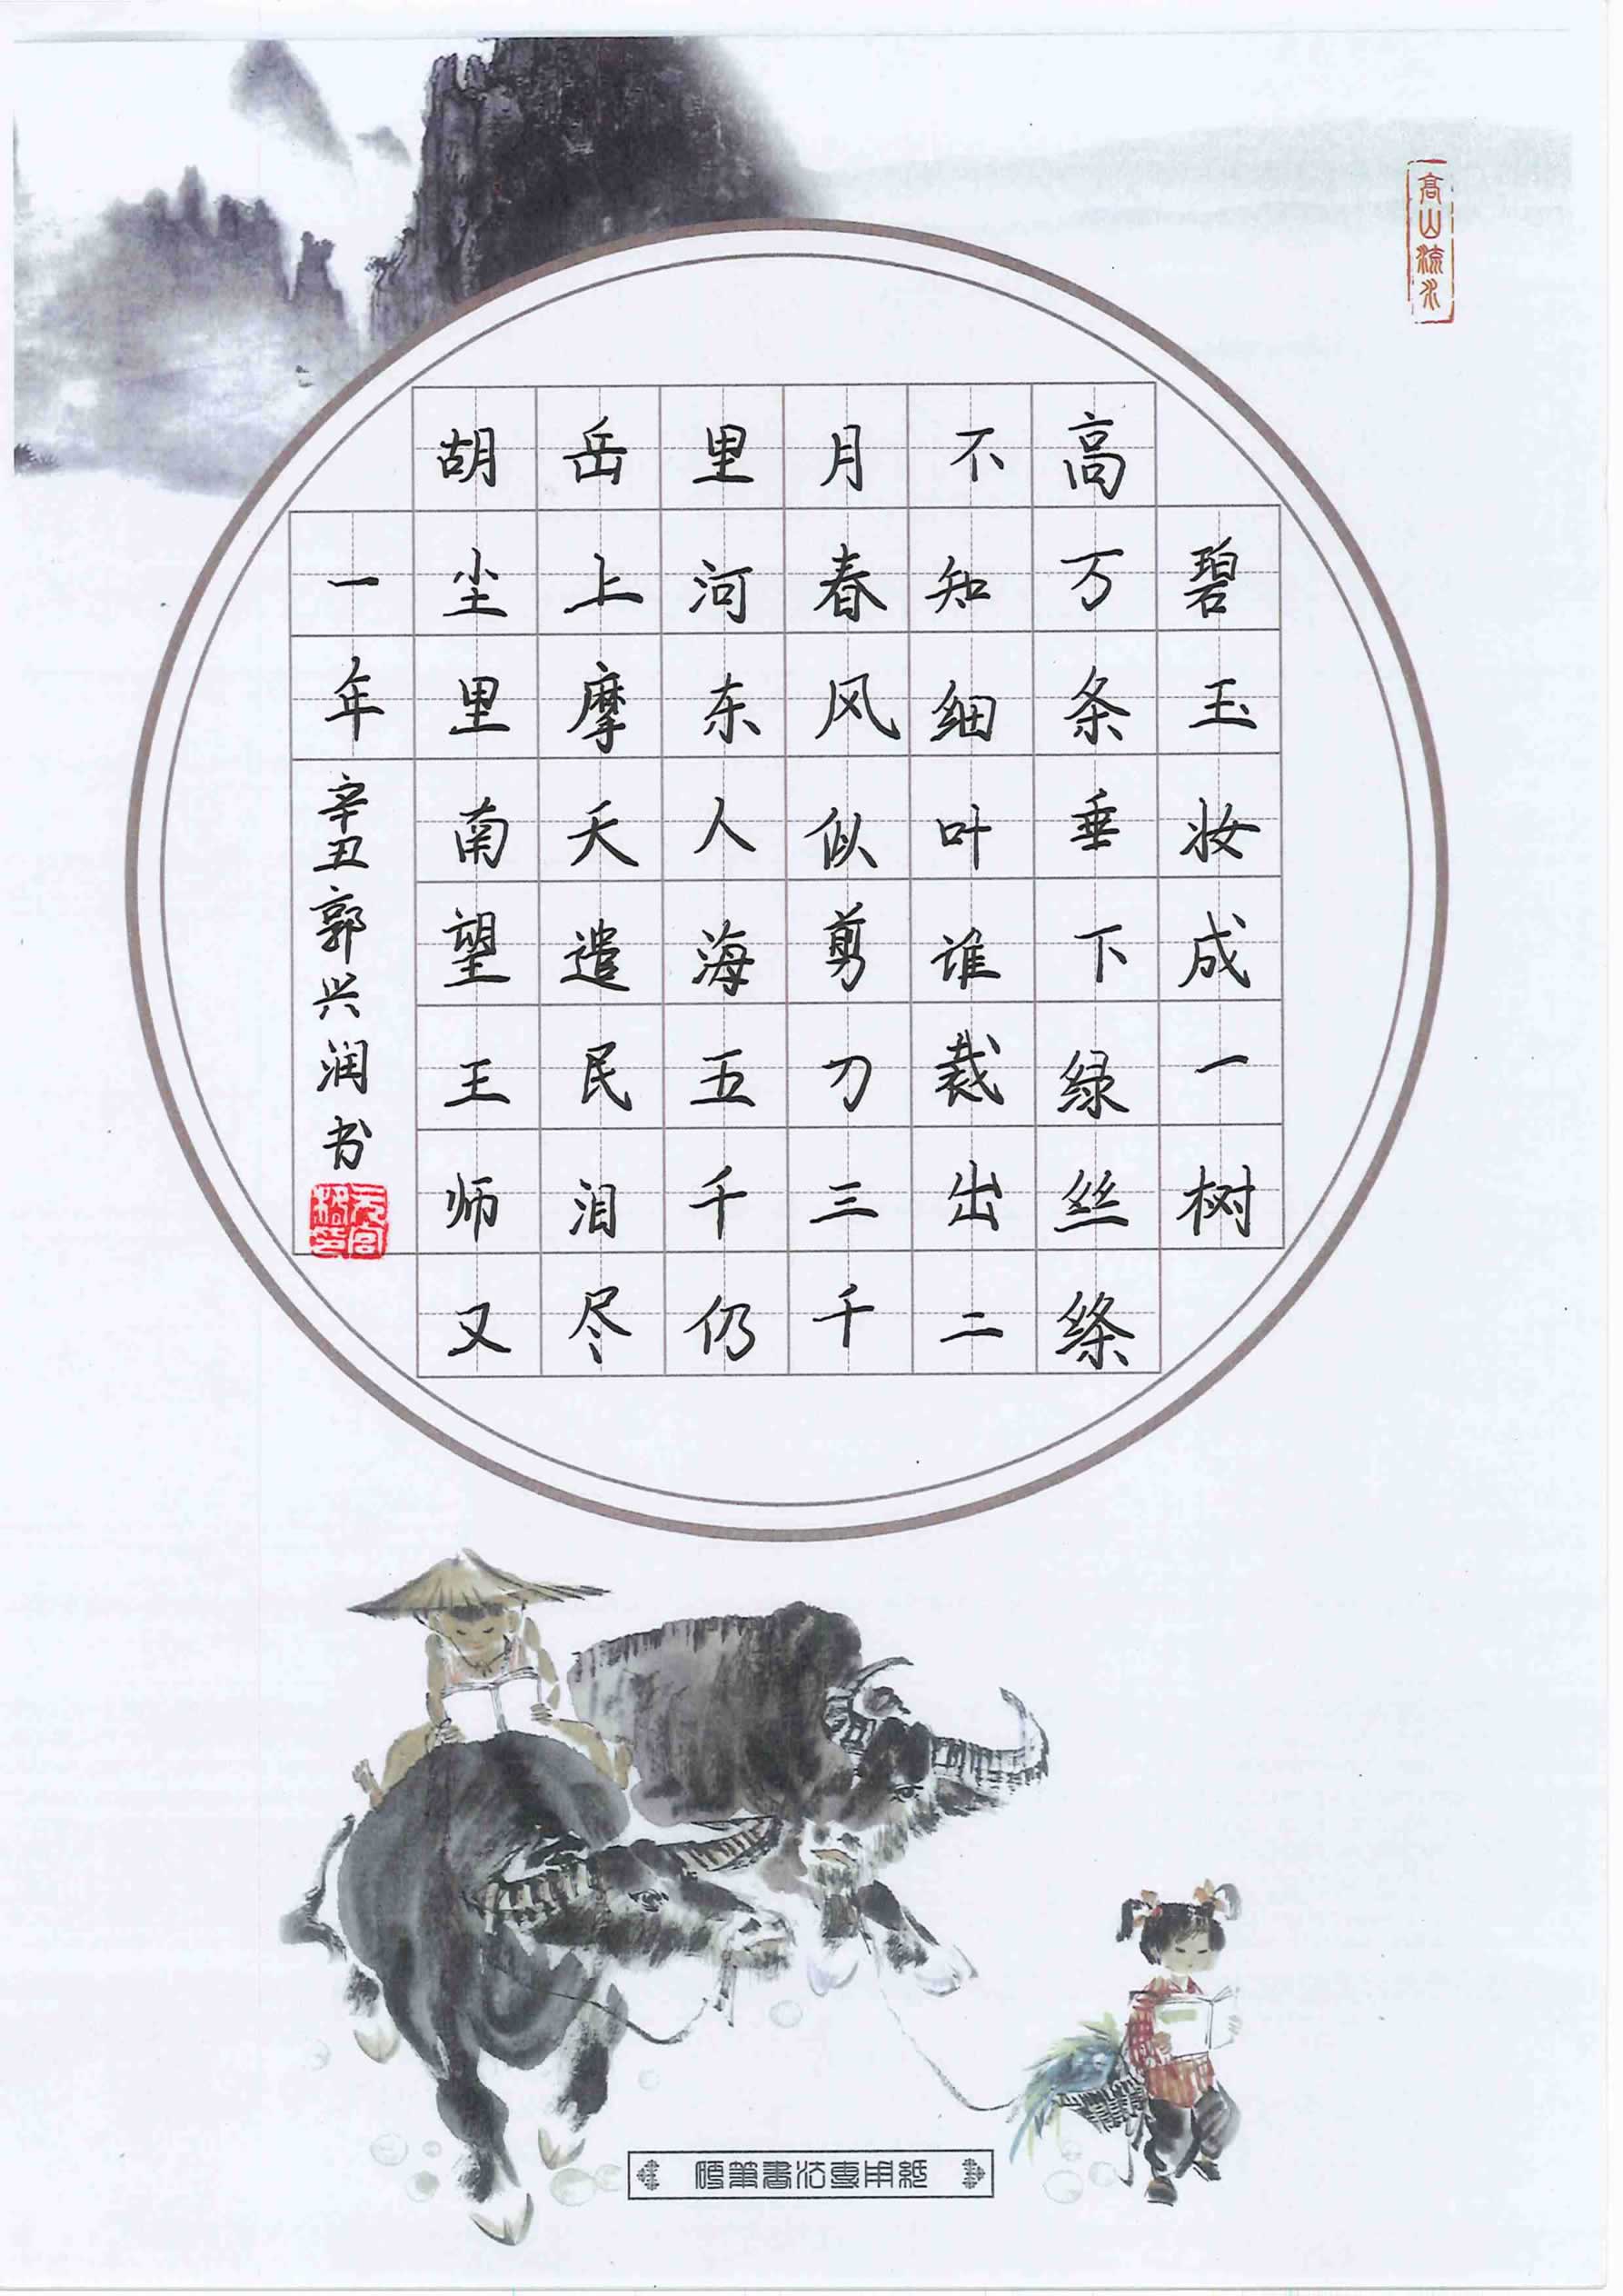 高山流水
碧玉妆成一树
高万条垂下绿丝绦
不知细叶谁裁出二
月春风似剪刀三千
里河东人海五千仍
岳上摩天遣民泪尽
胡尘里南望王师又
一年辛丑郭兴润书
硬筆書法專用紙